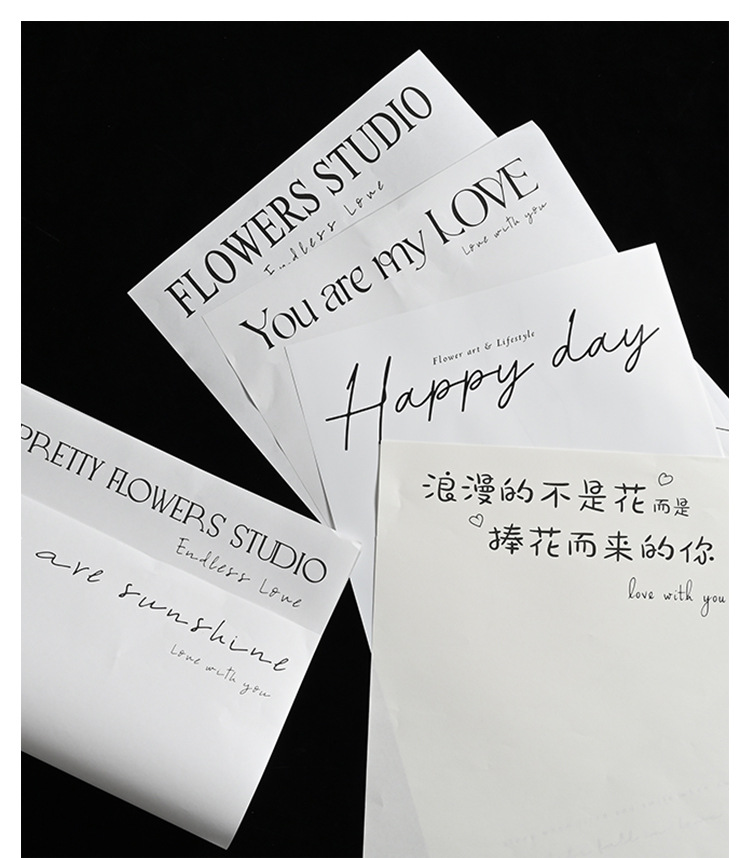 FLOWERS STUDIO
Endless Love
You are my LOVE
Love with you
Flower art & Lifestyle
Happy day
浪漫的不是花而是
捧花而来的你
love with you
PRETTY FLOWERS STUDIO
Endless Love
are sunshine
Love with you